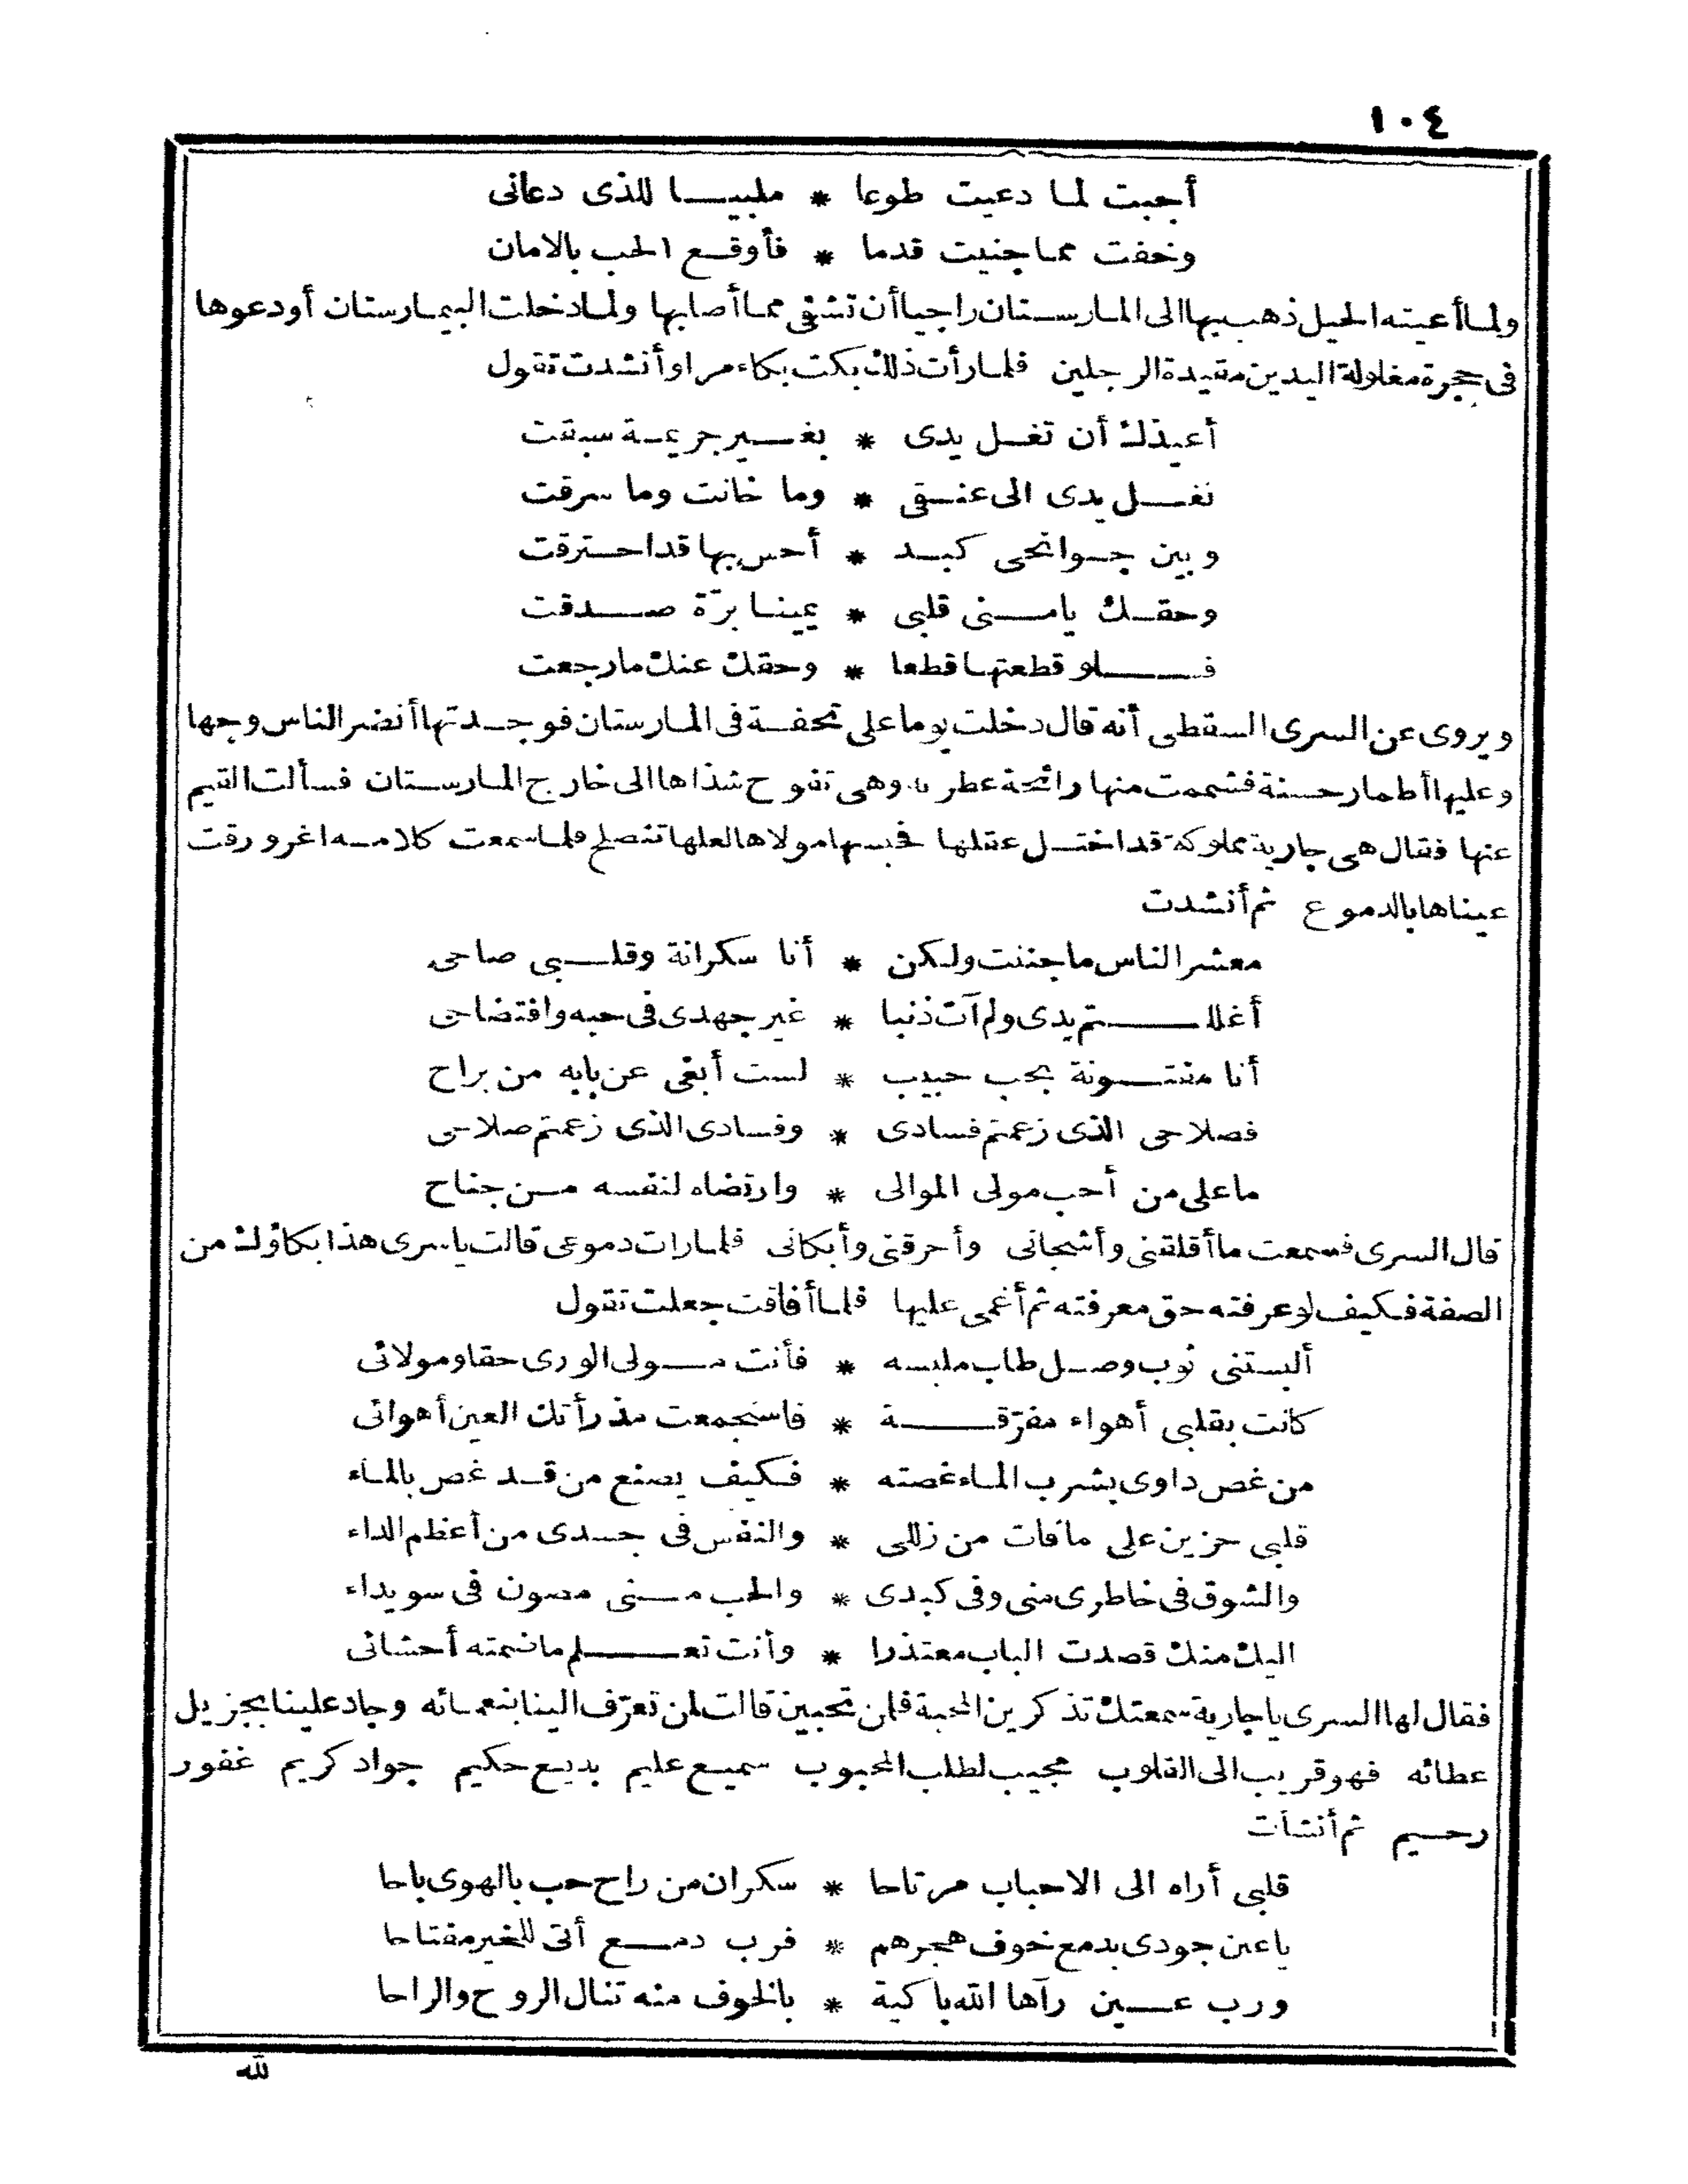 ١٠٤
أجبت لما دعيت طوعا * ملبيا للذى دعانى
وخفت مما جنيت قدما * فأوقع الحب بالامان
ولما أعيته الحيل ذهب بها الى المارستان راجيا أن تشفى مما أصابها ولما دخلت البيمارستان أودعوها
فى حجرة مغلولة اليدين مقيدة الرجلين فلما رأت ذلك بكت بكاء مرا وأنشدت تقول
أعيذك أن تغل يدى * بغير جريمة سبقت
تغل يدى الى عنقى * وما خانت وما سرقت
وبين جوانحى كبد * أحس بها قد احترقت
وحقك يا منى قلبى * يمينا برّة صدقت
فلو قطعتها قطعا * وحقك عنك ما رجعت
ويروى عن السرى السقطى أنه قال دخلت يوما على تحفة فى المارستان فوجدتها أنضر الناس وجها
وعليها أطمار حسنة فشممت منها رائحة عطرية وهى تفوح شذاها الى خارج المارستان فسألت القيم
عنها فقال هى جارية مملوكة قد اختل عقلها فحبسها مولاها لعلها تنصلح فلما سمعت كلامه اغرورقت
عيناها بالدموع ثم أنشدت
معشر الناس ما جننت ولكن * أنا سكرانة وقلبى صاحى
أغللتم يدى ولم آت ذنبا * غير جهدى فى حبه وافتضاحى
أنا مفتونة بحب حبيب * لست أبغى عن بابه من براح
فصلاحى الذى زعمتم فسادى * وفسادى الذى زعمتم صلاحى
ما على من أحب مولى الموالى * وارتضاه لنفسه من جناح
قال السرى فسمعت ما أقلقنى وأشجانى وأحرقنى وأبكانى فلما رات دموعى قالت يا سرى هذا بكاؤك من
الصفة فكيف لو عرفته حق معرفته ثم أغمى عليها فلما أفاقت جعلت تقول
ألبستنى ثوب وصل طاب ملبسه * فأنت مولى الورى حقا ومولائى
كانت بقلبى أهواء مفرّقة * فاستجمعت مذ رأتك العين أهوائى
من غص داوى بشرب الماء غصته * فكيف يصنع من قد غص بالماء
قلبى حزين على ما فات من زللى * والنفس فى جسدى من أعظم الداء
والشوق فى خاطرى منى وفى كبدى * والحب منى مصون فى سويداء
اليك منك قصدت الباب معتذرا * وأنت تعلم ما ضمته أحشائى
فقال لها السرى يا جارية سمعتك تذكرين المحبة فلمن تحبين قالت لمن تعرّف الينا بنعمائه وجاد علينا بجزيل
عطائه فهو قريب الى القلوب مجيب لطلب المحبوب سميع عليم بديع حكيم جواد كريم غفور
رحيم ثم أنشات
قلبى أراه الى الاحباب مرتاحا * سكران من راح حب بالهوى باحا
يا عين جودى بدمع خوف هجرهم * فرب دمع أتى للخير مفتاحا
ورب عين رآها الله باكية * بالخوف منه تنال الروح والراحا
لله